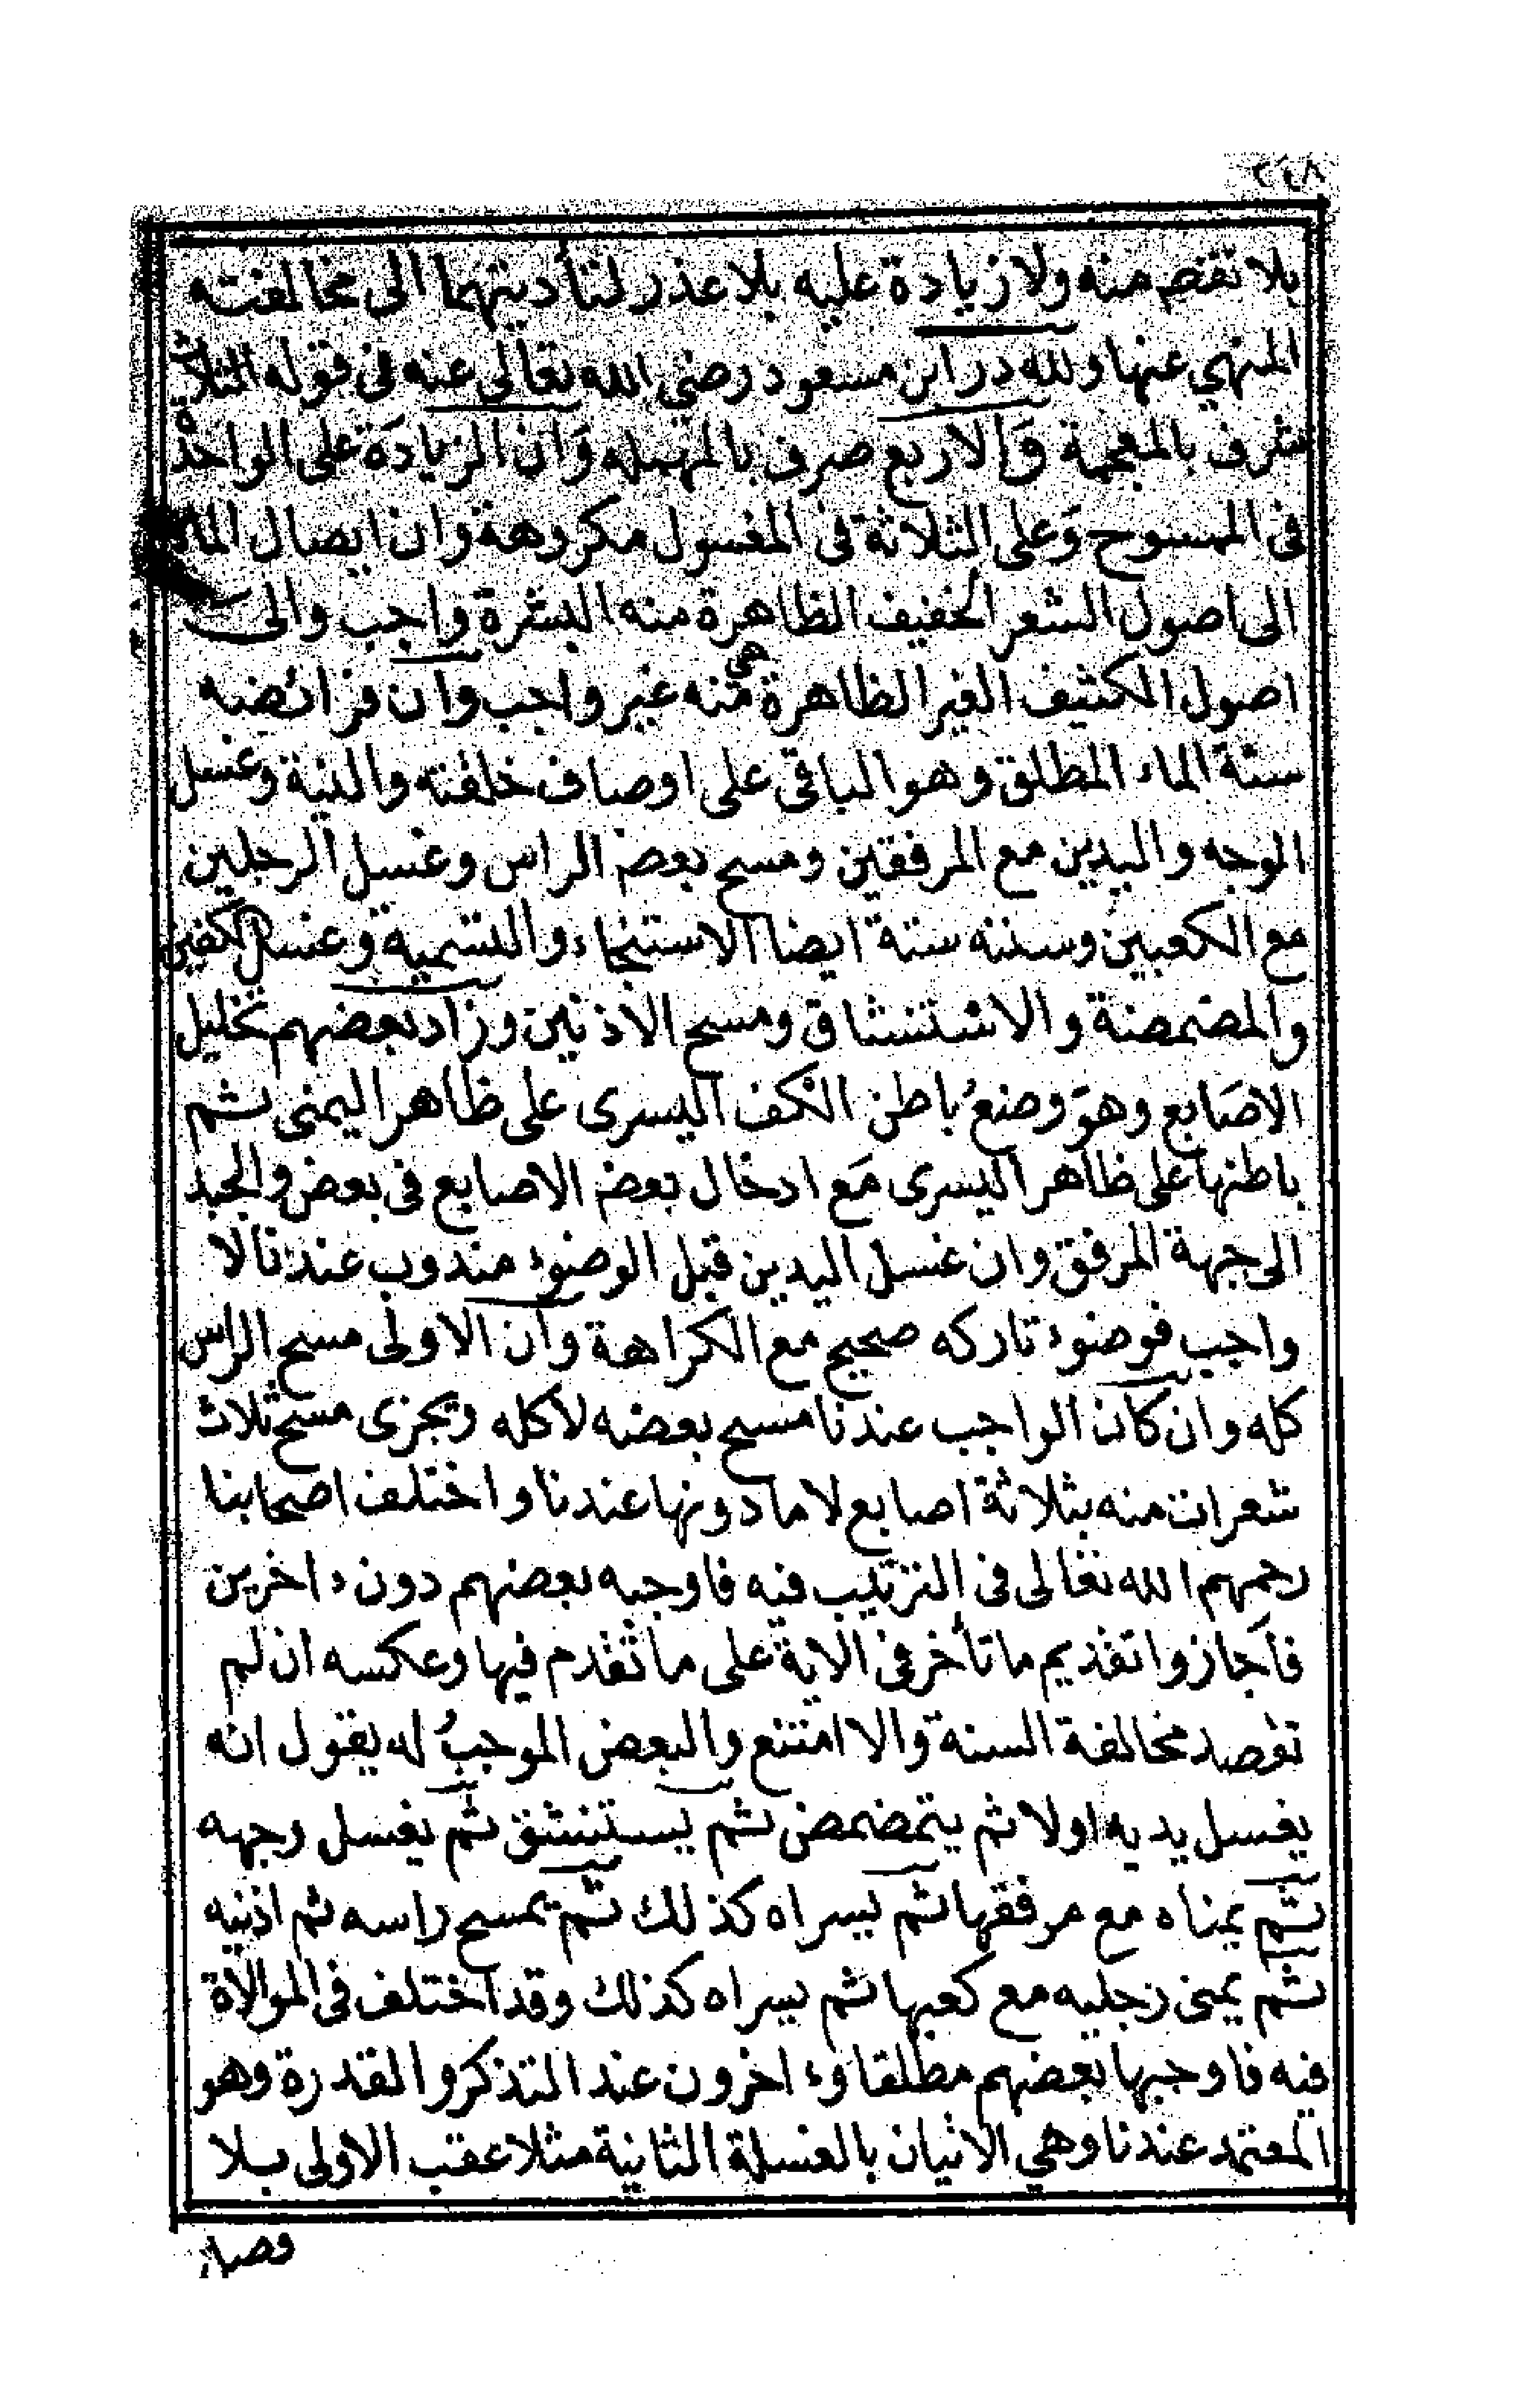 ٢٤٨
بلا نقص منه ولا زيادة عليه بلا عذر لتأديتهما الى مخالفته
المنهي عنها ولله در ابن مسعود رضي الله تعالى عنه في قوله الثلاث
شرف بالمعجمة وَالاربع صرف بالمهمله وَان الزيادَة على الواحدة
في الممسوح وَعلى الثلاثة في المغسول مكروهة وان ايصال الماء
الى اصول الشعر الخفيف الظاهرة منه البشرة واجب والى
اصول الكثيف الغير الظاهرة هي منه غير واجب وان فرائضه
ستة الماء المطلق وهو الباقي على اوصاف خلقته والنية وغسل
الوجه واليدين مع المرفقين ومسح بعض الراس وغسل الرجلين
مع الكعبين وسننه ستة ايضا الاستنجاء والتسمية وغسل الكفين
والمضمضة والاستنشاق ومسح الاذنين وزاد بعضهم تخليل
الاصَابع وهوَ وضعُ باطن الكف اليسرى على ظاهر اليمنى ثم
باطنها على ظاهر اليسرى مَع ادخال بعض الاصابع في بعض والجبذ
الى جهة المرفق وان غسل اليدين قبل الوضوء مندوب عندنا لا
واجب فوضوء تاركه صحيح مع الكراهة وان الاولى مسح الراس
كله وان كان الواجب عندنا مسح بعضه لا كله ويجزى مسح ثلاث
شعرات منه بثلاثة اصابع لا ما دونها عندنا واختلف اصحابنا
رحمهم الله تعالى في الترتيب فيه فاوجبه بعضهم دون ءاخرين
فاَجازوا تقديم ما تأخر في الاية على ما تقدم فيها وعكسه ان لم
تقصد مخالفة السنة والا امتنع والبعض الموجبُ له يقول انه
يغسل يديه اولا ثم يتمضمض ثم يستنشق ثم يغسل وجهه
ثم يمناه مع مرفقها ثم يسراه كذلك ثم يمسح راسه ثم اذنيه
ثم يمنى رجليه مع كعبها ثم يسراه كذلك وقد اختلف في الموالاة
فيه فاوجبها بعضهم مطلقا وءاخرون عند التذكر والقدرة وهو
المعتمد عندنا وهي الاتيان بالغسلة الثانية مثلا عقب الاولى بلا
فصل